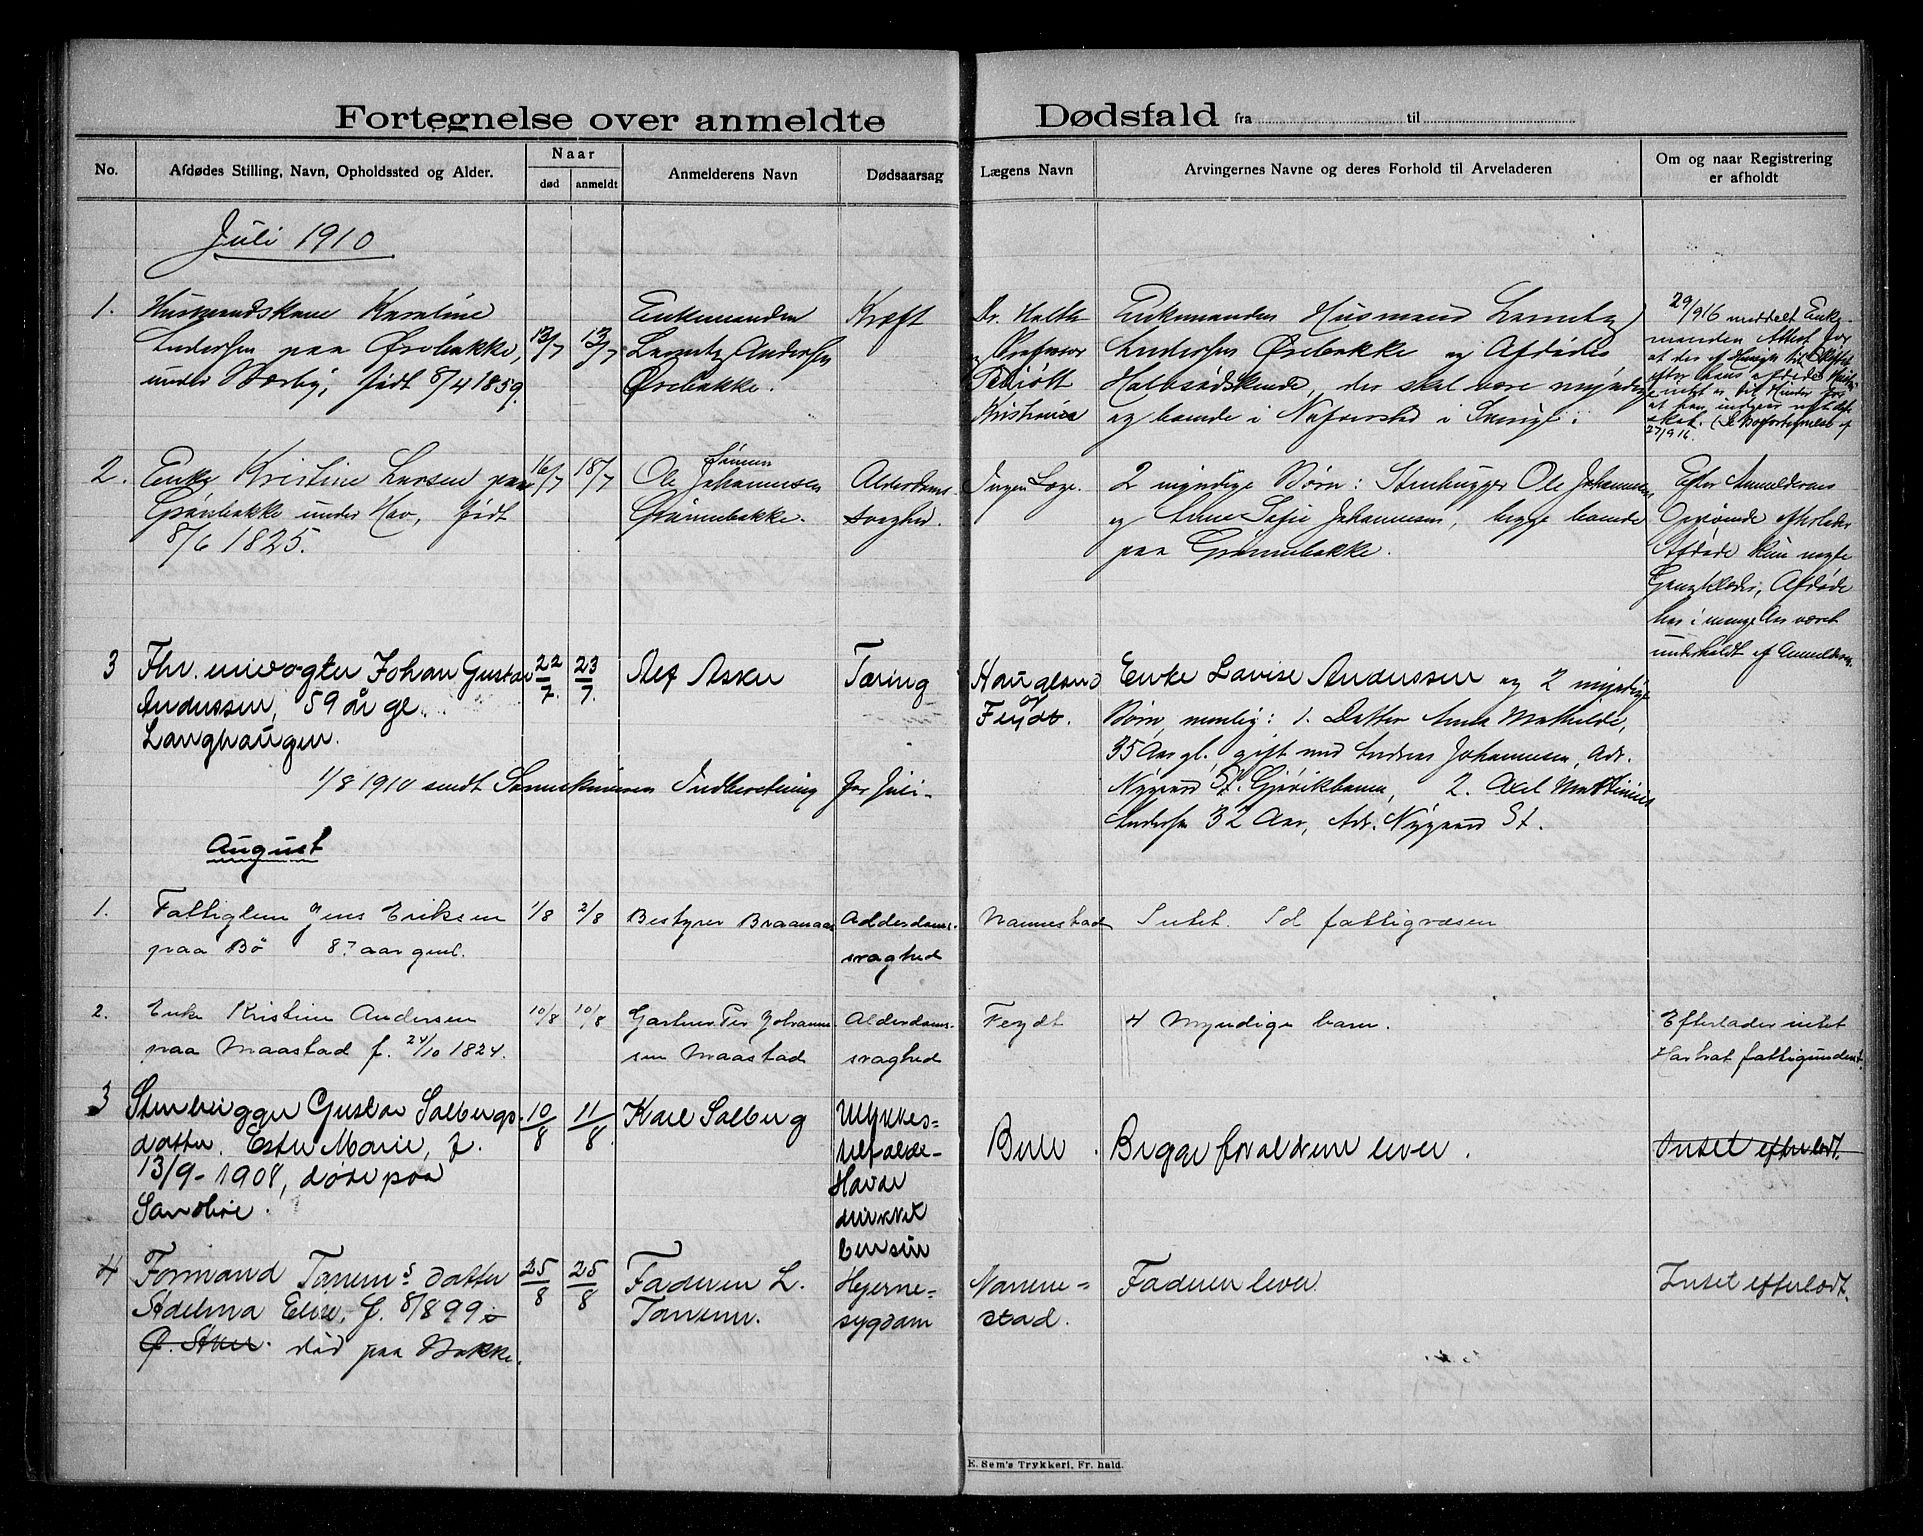 Fortegnelse over anmeldte Dødsfald fra ........ til ........
No.
Afdødes Stilling, Navn, Opholdssted og Alder.
Naar
død
anmeldt
Anmelderens Navn
Dødsaarsag
Lægens Navn
Arvingernes Navne og deres Forhold til Arveladeren
Om og naar Registrering
er afholdt
Juli 1910
1.
Husmandskone Karoline
Andersen paa Ørebakke,
under Norby, født 8/4 1859.
13/7
13/7
Enkemanden
Laurentz Andersen
Ørebakke.
Kræft
Dr. Holth
og Professor
Kristiania
Enkemanden Husmand Laurentz
Andersen Ørebakke og Afdødes
Halvsødskende, der skal være myndige
og boende i Naverstad i Sverige.
29/9 16 meddelt Enke-
manden Attest for
at der af Hensyn til
efter hans afdøde
intet er til Hinder for
at han indgaar nyt
27/9 16.
2.
Enke Kristine Larsen paa
Grønbakke under Hov, født
8/6 1825.
16/7
18/7
Sønnen
Ole Johannesen
Grønnebakke.
Alderdoms-
svaghed.
Ingen Læge.
2 myndige Børn: Stenhugger Ole Johannesen,
og Anne Sofie Johannesen, begge boende
paa Grønnebakke.
Efter Anmelderens
Opgivende efterlader
Afdøde kun nogle
Gangklæder, Afdøde
har i mange Aar været
underholdt af Anmelderen.
3
Fhv. Johan Gustav
Anderssen, 59 år gl.
Langhaugen.
22/7.
23/7.
Alf Asker
Tæring
Haugland
og
Feydt.
Enke Lovise Anderssen og 2 myndige
Børn, nemlig: 1. Datter Anna Mathilde,
35 Aar gl. gift med Andreas Johannesen, Adr.
Nygaard St. Gjøvikbanen, 2. Axel Mathinius
Andersen 32 Aar, Adr. Nygaard St.
1/8 1910 sendt Sorenskriveren Indberetning for Juli.
August
1.
Fattiglem Jens Eriksen
paa Bø 87 aar gml.
1/8
2/8
Bestyrer Braanaas
Alderdoms-
svaghed
Nannestad
Intet. Id fattigvæsen
2.
Enke Kristine Andersen
paa Maastad f. 24/10 1824.
10/8
10/8
Gartner Per Johannes-
sen Maastad
Alderdoms-
svaghed
Feydt
4 Myndige barn.
Efterlader intet
Har hat fattigunderst.
3
Stenhugger Gustav Solbergs
datter, Ester Marie, f.
13/9-1908, døde paa
Sandlie.
10/8
11/8
Karl Solberg
Ulykkes-
tilfælde-
Havde
drukket
bensin
Begge forældrene lever.
Intet efterladt.
4
Formand Tanems datter
Adelma Elise, f. 8/8 99
død paa Bakke.
25/8
25/8
Faderen L.
Tanem.
Hjerne-
sygdom
Nanne-
stad.
Faderen lever
Intet efterladt.
E. Sem's Trykkeri, Fr. hald.